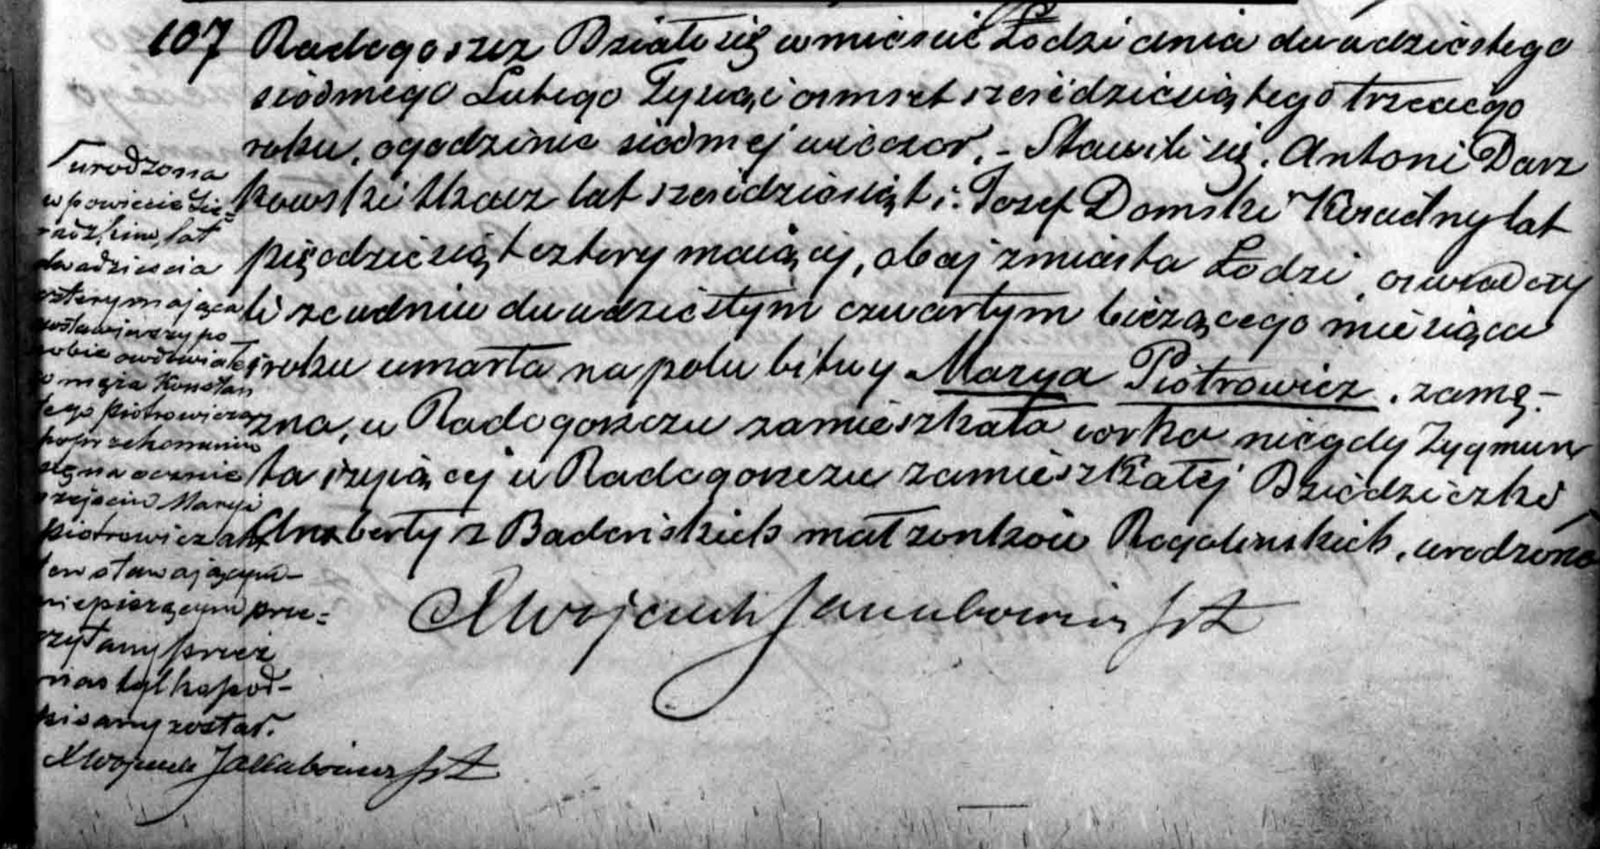 107 Radogoszcz Działo się w mieście Łodzi dnia dwudziestego
siódmego Lutego Tysiąc ośmset sześćdziesiątego trzeciego
roku, o godzinie siódmej wieczor. – Stawili się. Antoni Darz
kowski tkacz lat sześćdziesiąt i Józef Domski lat
pięćdziesiąt cztery maiący, obaj z miasta Łodzi, oswiadczy
li ze w dniu dwudziestym czwartym bieżącego miesiąca
i roku umarła na polu bitwy Marya Piotrowicz, zamę-
zna, w Radogoszczu zamieszkała corka niegdy Zygmun
ta i żyjącej w Radogoszczu zamieszkałej Dziedziczki
z Badeńskich małzonków Rogolinskich, urodzona
X Wojciech Jakubowicz
urodzona
w powiecie Sie-
radzkim, lat
dwadzieścia
cztery mająca
zostawiwszy po
sobie owdowiałe
go męża Konstan
tego Piotrowicza
po przekonaniu
się na ocznie
o zejściu Maryi
Piotrowicz akt
ten stawającym
niepiszącym prze-
czytany przez
nas tylko pod-
pisany został.
X Wojciech Jakubowicz